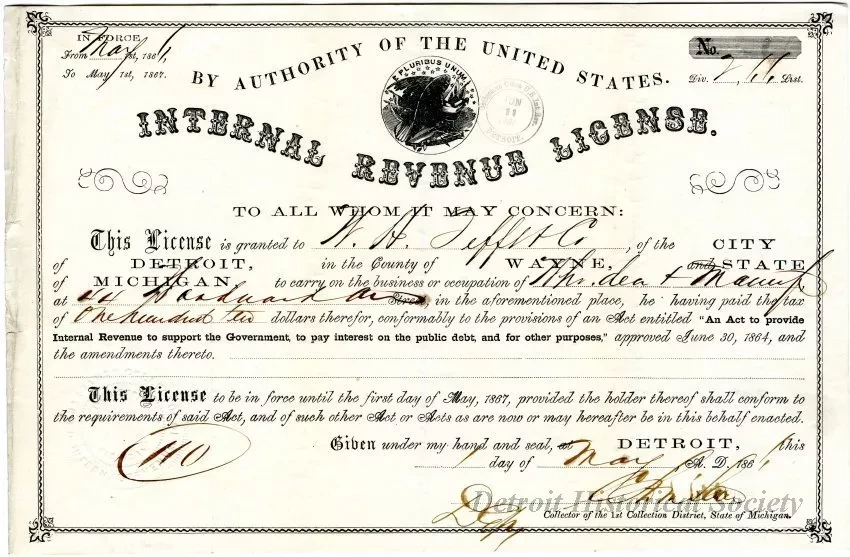 IN FORCE
From May 1st, 1866,
To May 1st, 1867.
No.
Div. 2 Dist.
BY AUTHORITY OF THE UNITED STATES.
E PLURIBUS UNUM
DETROIT
INTERNAL REVENUE LICENSE.
TO ALL WHOM IT MAY CONCERN:
This License is granted to W. H. Tefft & Co, of the CITY
of DETROIT, in the County of WAYNE, and STATE
of MICHIGAN, to carry on the business or occupation of Whs. dea & Manuf
at 44 Woodward av Street in the aforementioned place, he having paid the tax
of One hundred ten dollars therefor, conformably to the provisions of an Act entitled "An Act to provide
Internal Revenue to support the Government, to pay interest on the public debt, and for other purposes," approved June 30, 1864, and
the amendments thereto.
This License to be in force until the first day of May, 1867, provided the holder thereof shall conform to
the requirements of said Act, and of such other Act or Acts as are now or may hereafter be in this behalf enacted.
110
Given under my hand and seal, at DETROIT, this
1 day of May A. D. 1866
Detroit Historical Society
Depy
Collector of the 1st Collection District, State of Michigan.